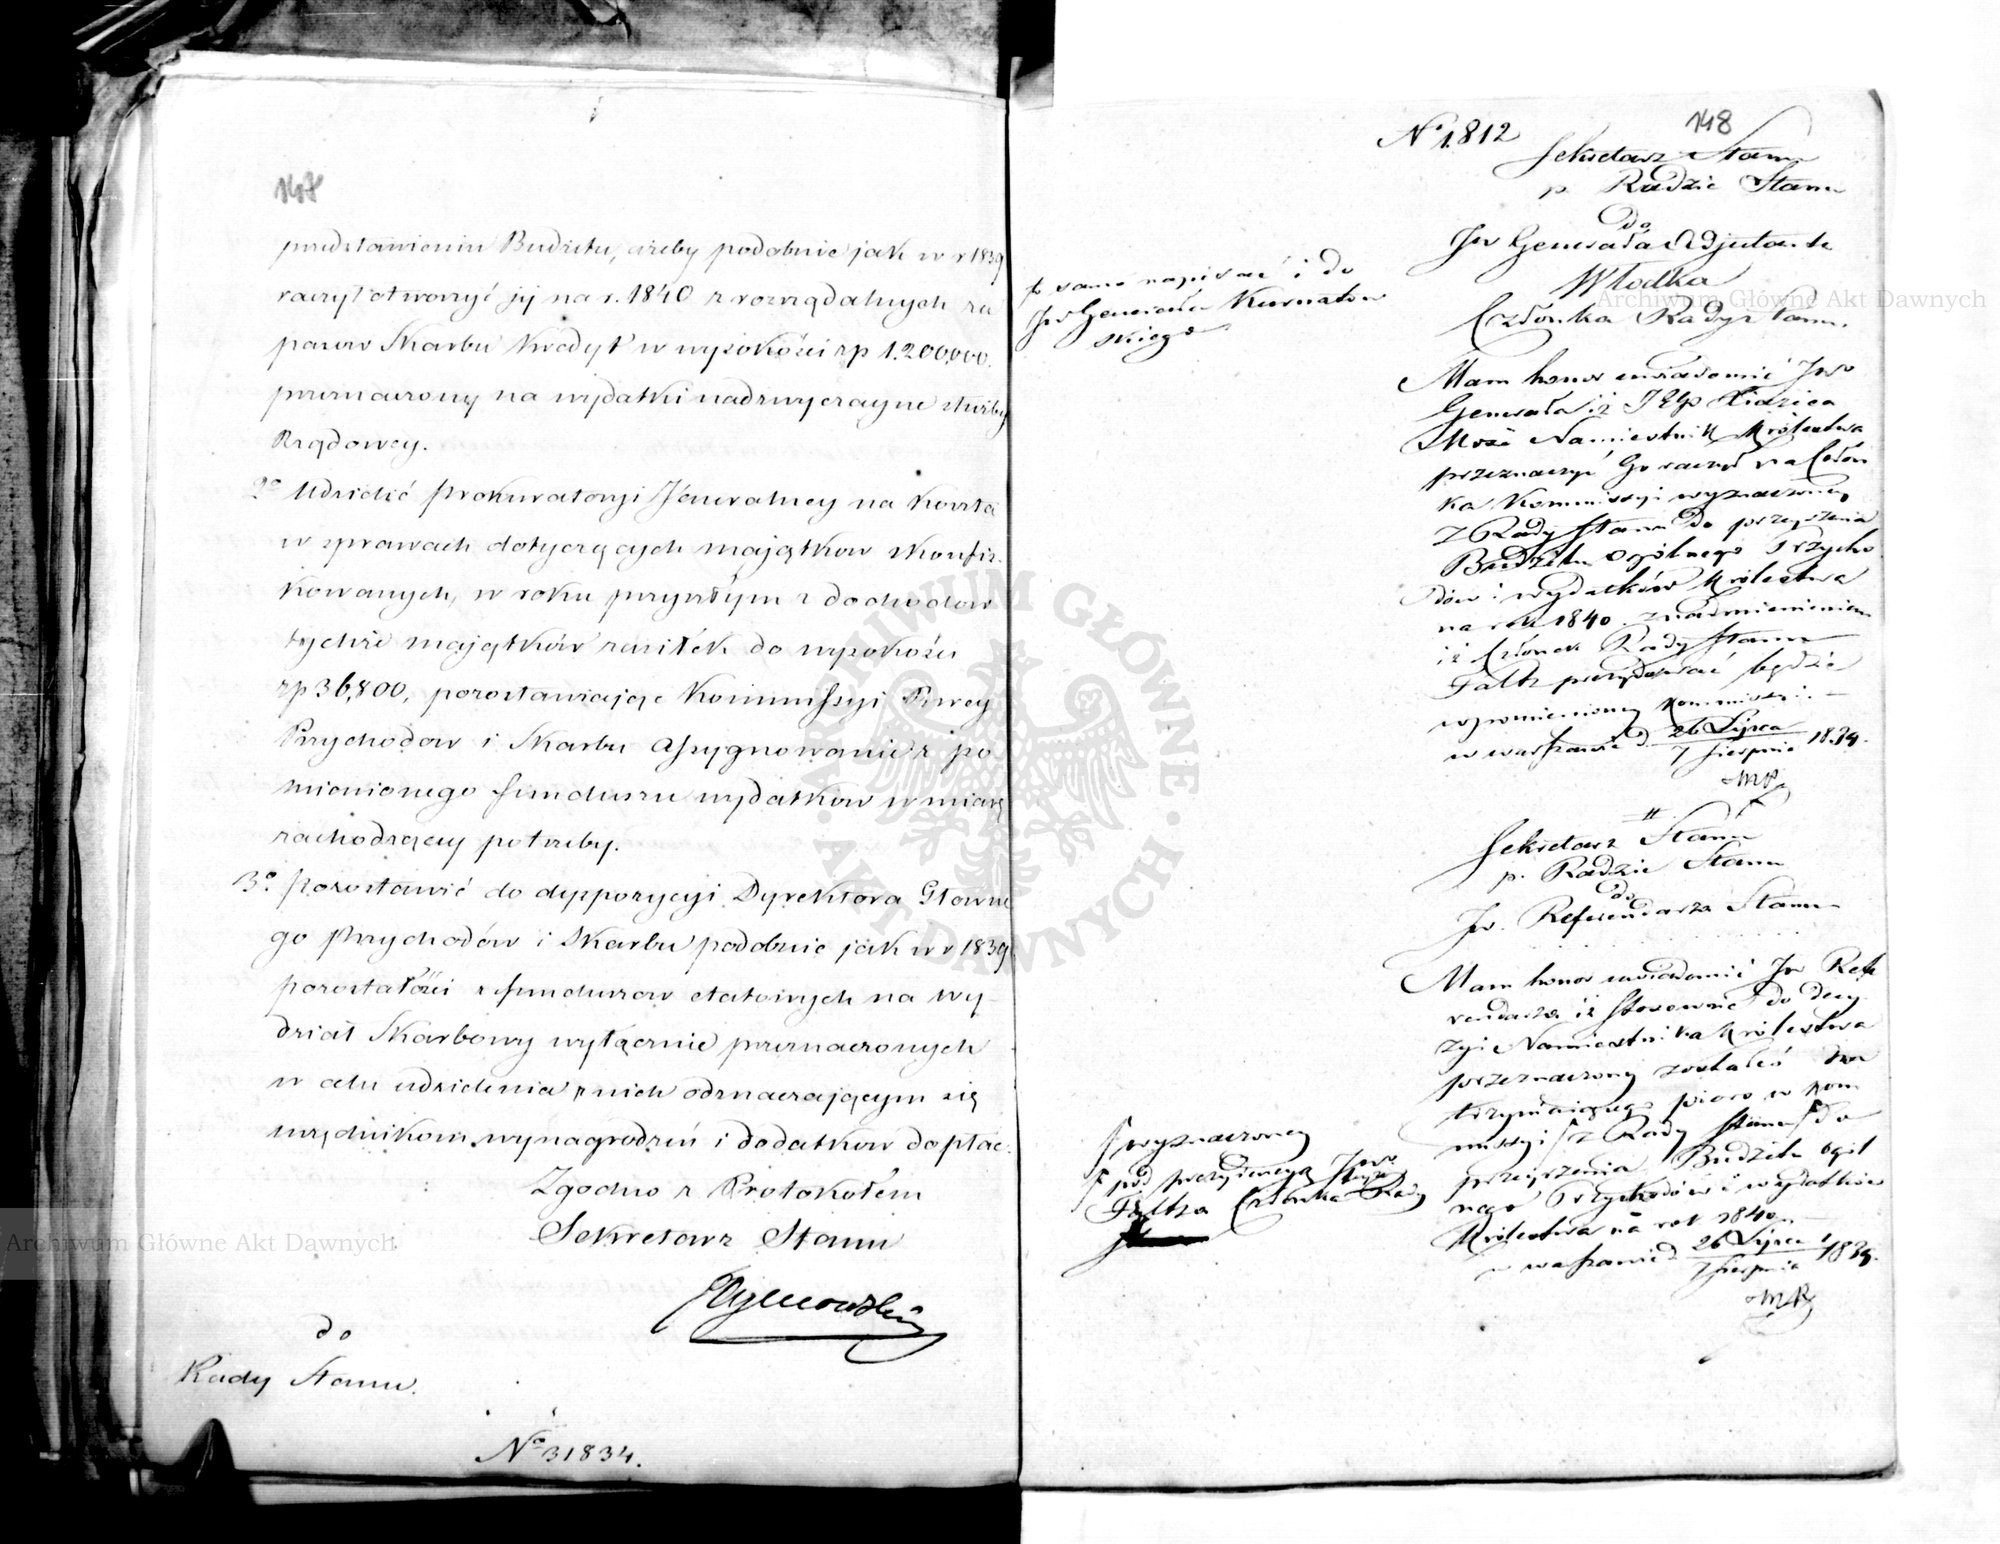 147
przedstawieniu Budżetu, ażeby podobnie jak w r 1839
raczył otworzyć jej na r. 1840 z rozrządalnych za
pasow Skarbu Kredyt w wysokości zp 1.200,000.
przeznaczony na wydatki nadzwyczayne służby
Rządowey.
2o Udzielić Prokuratoryi Jeneralney na koszta
w sprawach dotyczących majątkow skonfis-
kowanych, w roku przyszłym z dochodow
tychże majątków zasiłek do wysokości
zp 36,800, pozostawiając Kommissyi Rzwey
Przychodow i Skarbu assygnowanie z po
mienionego funduszu wydatkow w miarę
zachodzącey potrzeby.
3o Pozostawić do dyspozycyi Dyrektora Główne
go Przychodów i Skarbu podobnie jak w r 1839
pozostałości z funduszow etatowych na wy-
dział Skarbowy wyłącznie przeznaczonych
w celu udzielenia z nich odznaczającym się
urzędnikom wynagrodzeń i dodatkow do płac.
Zgodno z Protokołem
Sekretarz Stanu
do
Rady Stanu.
No 31834.
148
No 1.812
Sekretarz Stanu
p. Radzie Stanu
do
Jw Generała Adjutanta
Włodka
Członka Rady Stanu.
to samo napisać i do
Jw Generała Kurnatow
skiego
Mam honor uwiadomić Jwo
Generała iż JO Xiążica
Namiestnik Królestwa
przeznaczyć Go raczył na Człon
ka Kommissyi wyznaczoney
z Rady Stanu do przejrzenia
Budżetu ogólnego Przycho
dów i wydatków Królestwa
na rok 1840. z nadmienieniem
iż Członek Rady Stanu
Faltz prezydować będzie
wspomnioney Kommissyi. —
w Warszawie d. 26 Lipca / 7 Sierpnia 1839.
Sekretarz Stanu
p. Radzie Stanu
do
Jw. Referendarza Stanu
Mam honor uwiadomić Jw Refe
rendarza iż stosownie do decy
zyi Namiestnika Królestwa
przeznaczony zostałeś na
trzymaiącego pioro w Kom
missyi z Rady Stanu do
przejrzenia Budżetu ogól
nego Przychodów i wydatków
Królestwa na rok 1840.
w Warszawie d. 26 Lipca / 7 Sierpnia 1839.
wyznaczoney
pod prezydencyą Jwo
Faltza Członka Rady
Stanu
Archiwum Główne Akt Dawnych
Archiwum Główne Akt Dawnych
ARCHIWUM GŁÓWNE · AKT DAWNYCH ·